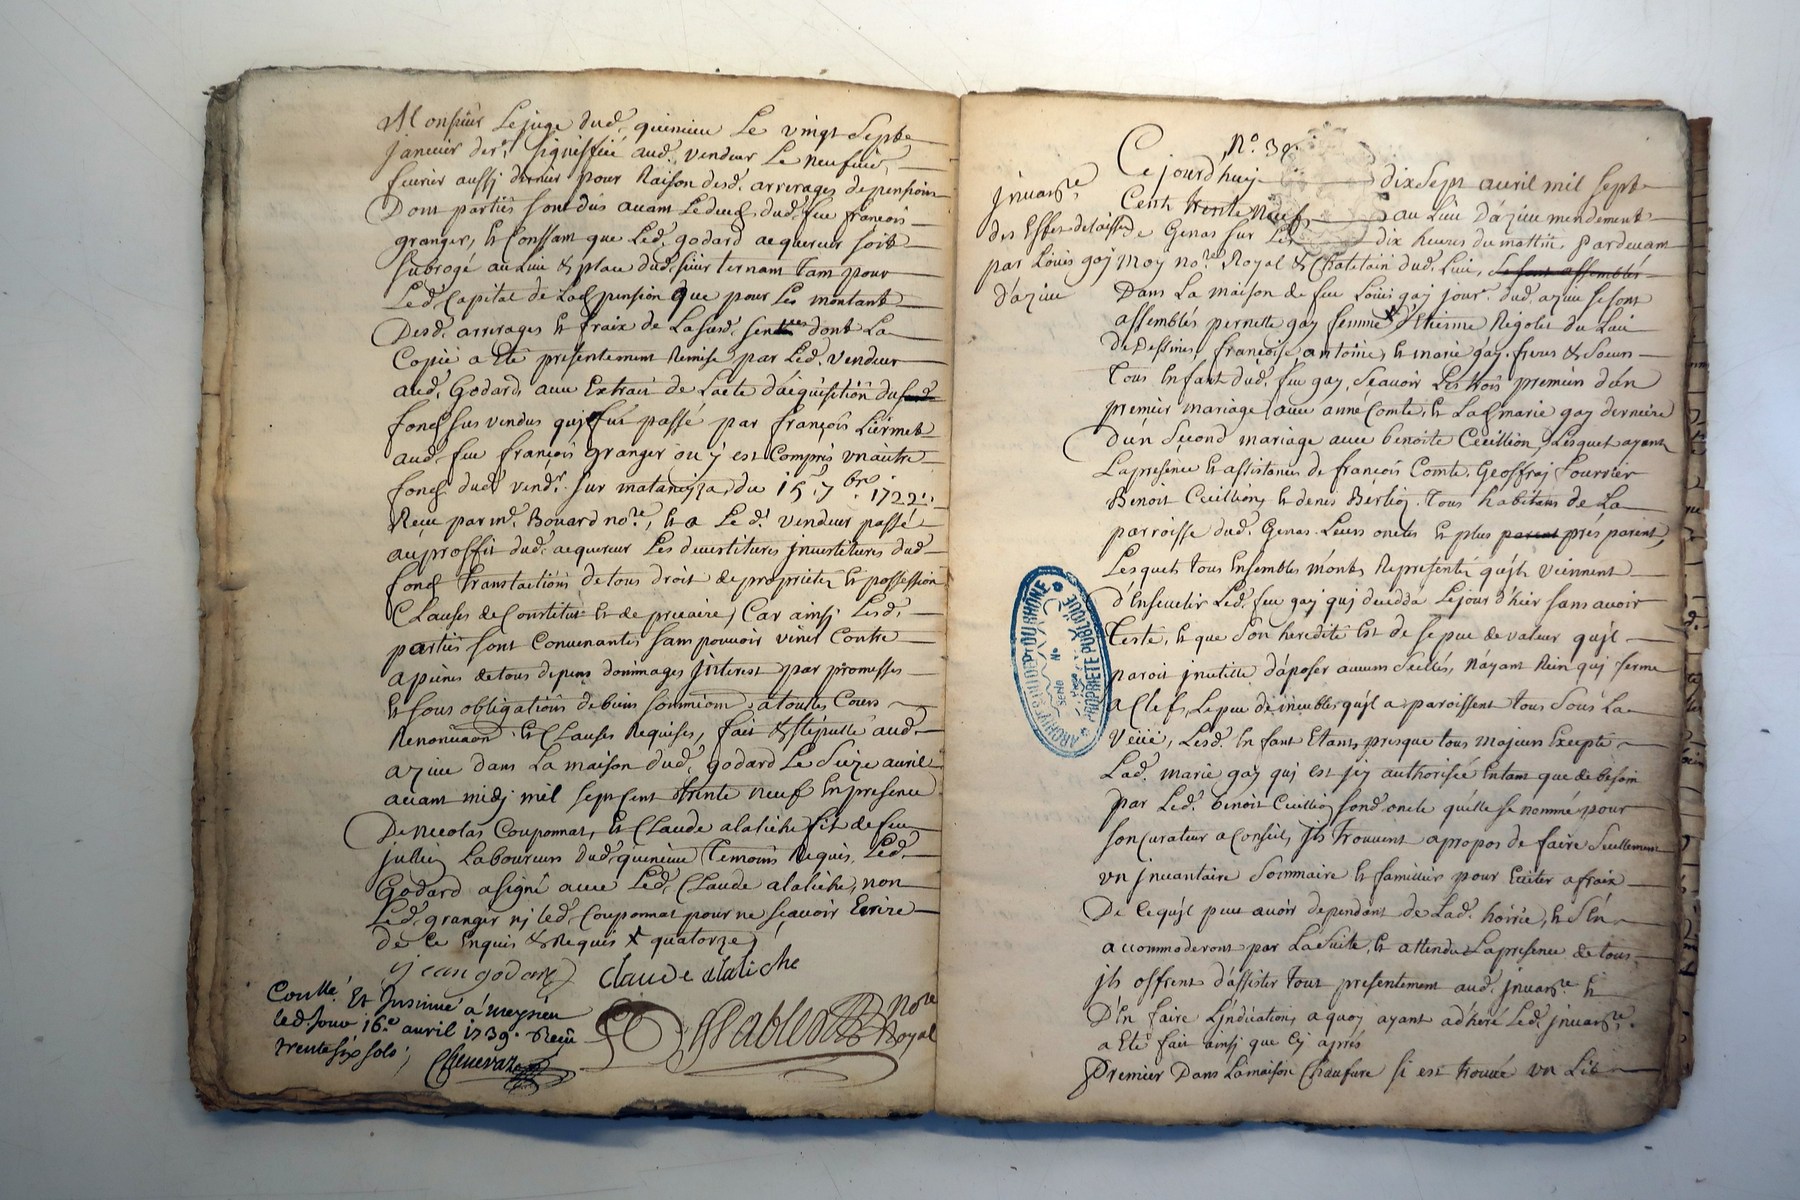 Monsieur Le juge dud. quirieu Le vingt Sept
janvier der. signiffiée aud. vendeur Le neufvie
fevrier aussj dernier pour Raison desd. arrerages depensions
Dont parties sont dus avant Ledeces dud. feu françois
granger, Et Consant que Led. godard acquereur soit
subrogé au Lieu & place dud. sieur ternant tant pour
Led. Capital de Lad. pension que pour Les montant
Desd. arrerages Et fraix de La susd. dont La
Copie a Eté presentement Remise par Led. vendeur
aud. Godard, avec Extrait de L'acte d'acquisition du
fond sus vendus quj fut passé par françois Liermet
aud. feu françois granger ou y est Compris un autre
fond dud. vend. sur du 15. 7bre. 1722.
Recu par me. Bouard nore, Et a Le d. vendeur passé
au proffit dud. acquereur Les devestitures jnvestitures dud.
fond translactions de tous droit de proprieté Et possession
Clauses de Constitut Et de precaire, Car ainsj Lesd.
parties sont Convenantes sans pouvoir venir Contre
a peines de tous depens dommages Interest par promesses
Et sous obligations de biens soumission a toutes Cours
Renonciaon Et Clauses Requises, fait & stipullé aud.
azieu dans La maison dud. godard Le Sieze avril
avant midj mil sept Cent trente neuf En presence
De nicolas Couponnat, Et Claude alatiche fils de feu
jullien Laboureurs dud. quirieu temoins Requis, Led.
Godard a signé avec Led. Claude alatiche, non
Led. granger nj led. Couponnat pour ne sçavoir Ecrire
de Ce Enquis & Requis X quatorze
jean godard Claude alatiche
Nore Royal
Conllé. Et Insinué a meyzieu
led. jour 16e. avril 1739. Reçu
trente six sols;
Chenevaz
No. 39.
jnvanre
des Effets delaissés
par Louis gaj
d'azieu
Cejourd'huij dix Sept avril mil sept
Cent trente Neuf au Lieu d'azieu mendement
de Genas sur Les dix heures du mattin, pardevant
Moy nore Royal & Chatelain dud. Lieu, se sont assemblés
Dans La maison de feu Louis gaj jour. dud. azieu se sont
assemblés pernette gay femme X d'Etienne Rigolet du Lieu
de Dessines, françoise, antoine, Et marie gay freres & Soeurs
Tous Enfant dud. feu gay, Sçavoir Les trois premiers d'un
premier mariage avec anne Comte, Et Lad. marie gay derniere
D'un Second mariage avec benoite Cuillion, Lesquel ayant
La presence Et assistances de françois Comte, Geoffroj fourrier
Benoit Cuillion, Et denis Berlioz. Tous habitans de La
parroisse dud. Genas. Leurs oncles Et plus parent près parent,
Lesquels tous Ensembles m'onts Representé qu'jls viennent
d'Ensevelir Led. feu gaj quj deceda Le jour d'hier sans avoir
Testé, Et que Son heredité Est de sy peu de valeur qu'jl
paroit jnutille d'aposer aucuns Scellés, N'ayant Rien quj ferme
a Clef, Le peu de meubles qu'jl a paroissent tous Sous La
Veüe, Lesd. Enfant Etants presque tous Majeurs Excepté
Lad. marie gay quj est jcy authorisée Entant que de besoin
par Led. benoit Cuillion sond. oncle qu'elle se nomme pour
son Curateur a Conseil, jls trouvent a propos de faire Seullement
un jnvantaire Sommaire Et famillier pour Eviter a fraix
De Ce qu'jl peut avoir dependant de Lad. hoirie, Et S'En
accommoderont par La Suite, Et attendu La presence de tous
jls offrent d'assister tout presentement aud. jnvanre Et
D'En faire L'jndication, a quoy ayant adheré Led. jnvanre.
a Eté fait ainsj que Cy après
Premier Dans La maison Chaufure si est trouvé un Lit
ARCHIVES DU DEPT DU RHONE
PROPRIETE PUBLIQUE
No